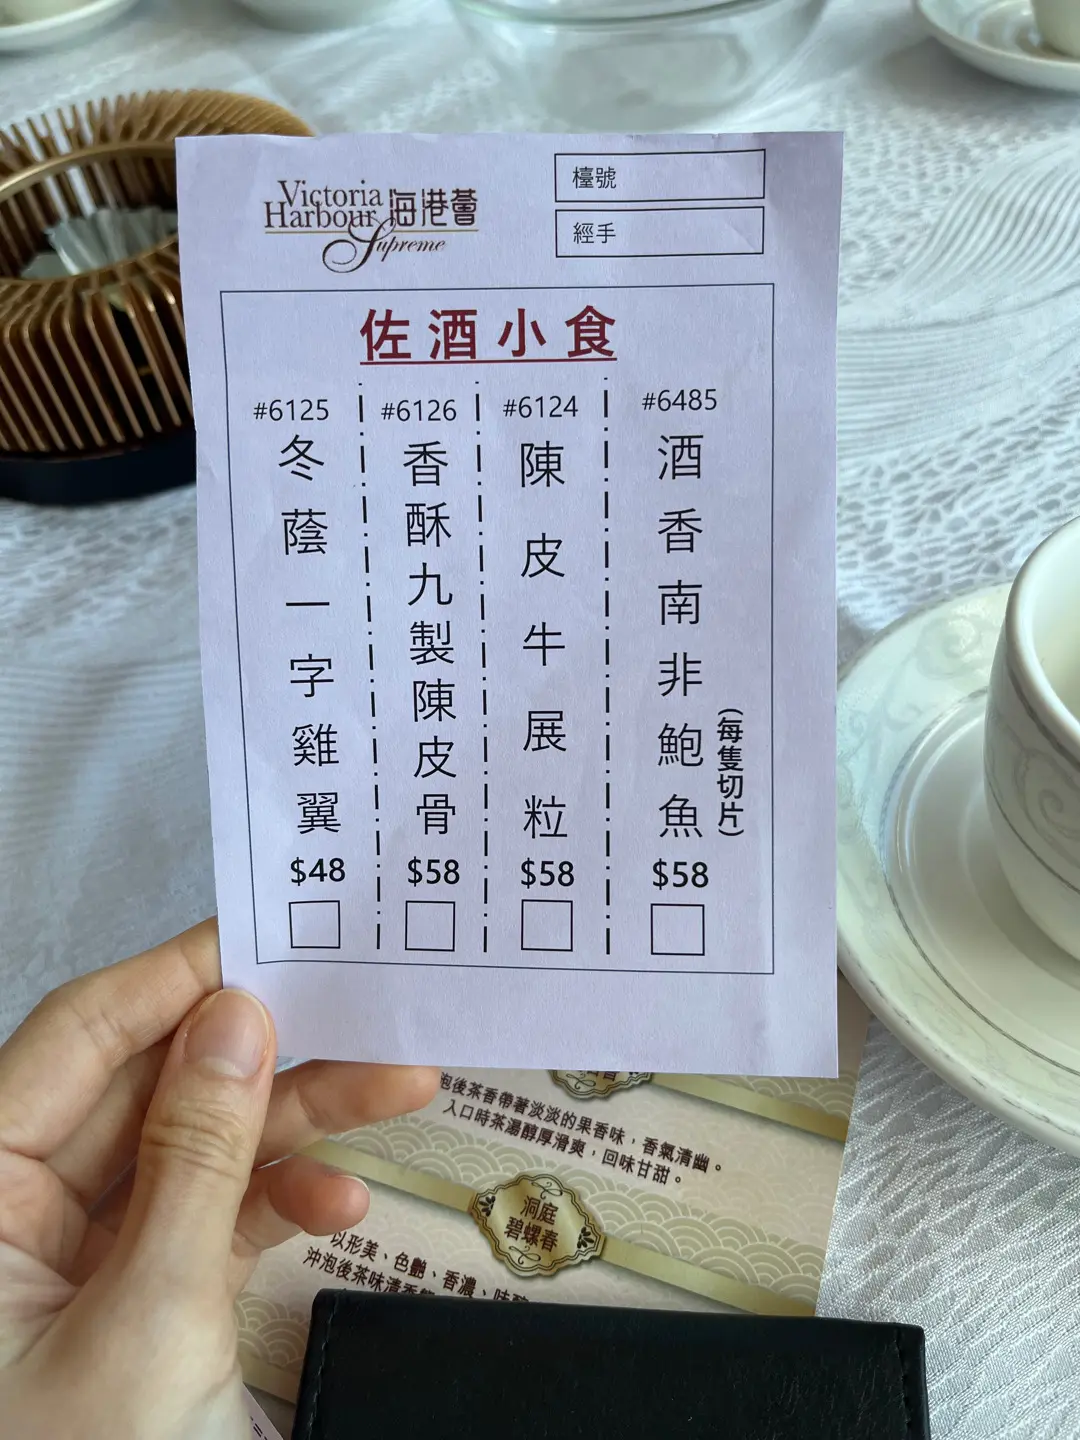 Victoria
Harbour 海港薈
Supreme
檯號
經手
佐酒小食
#6485
酒香南非鮑魚
(每隻切片)
$58
#6124
陳皮牛展粒
$58
#6126
香酥九製陳皮骨
$58
#6125
冬蔭一字雞翼
$48
泡後茶香帶著淡淡的果香味，香氣清幽。
入口時茶湯醇厚滑爽，回味甘甜。
洞庭
碧螺春
以形美、色艷、香濃、味醇
沖泡後茶味清香